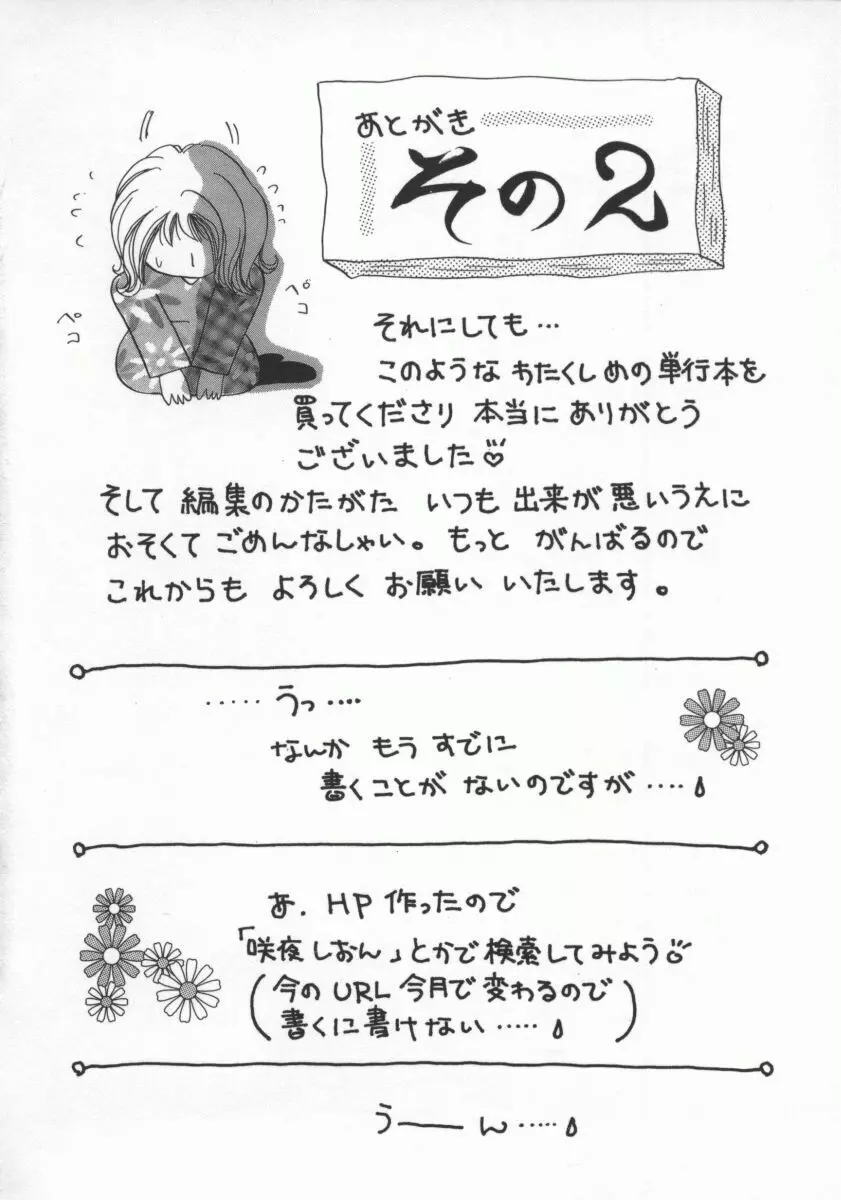 あとがき
その2
ペコ
ペコ
それにしても…
このような わたくしめの単行本を
買ってくださり 本当に ありがとう
ございました♡
そして 編集のかたがた いつも 出来が 悪いうえに
おそくて ごめんなしゃい。もっと がんばるので
これからも よろしく お願い いたします。
‥‥‥うっ‥‥
なんか もう すでに
書くことが ないのですが‥‥
あ. HP 作ったので
「咲夜しおん」とかで検索してみよう
(今の URL 今月で 変わるので
書くに書けない‥‥‥)
うーーん‥‥‥